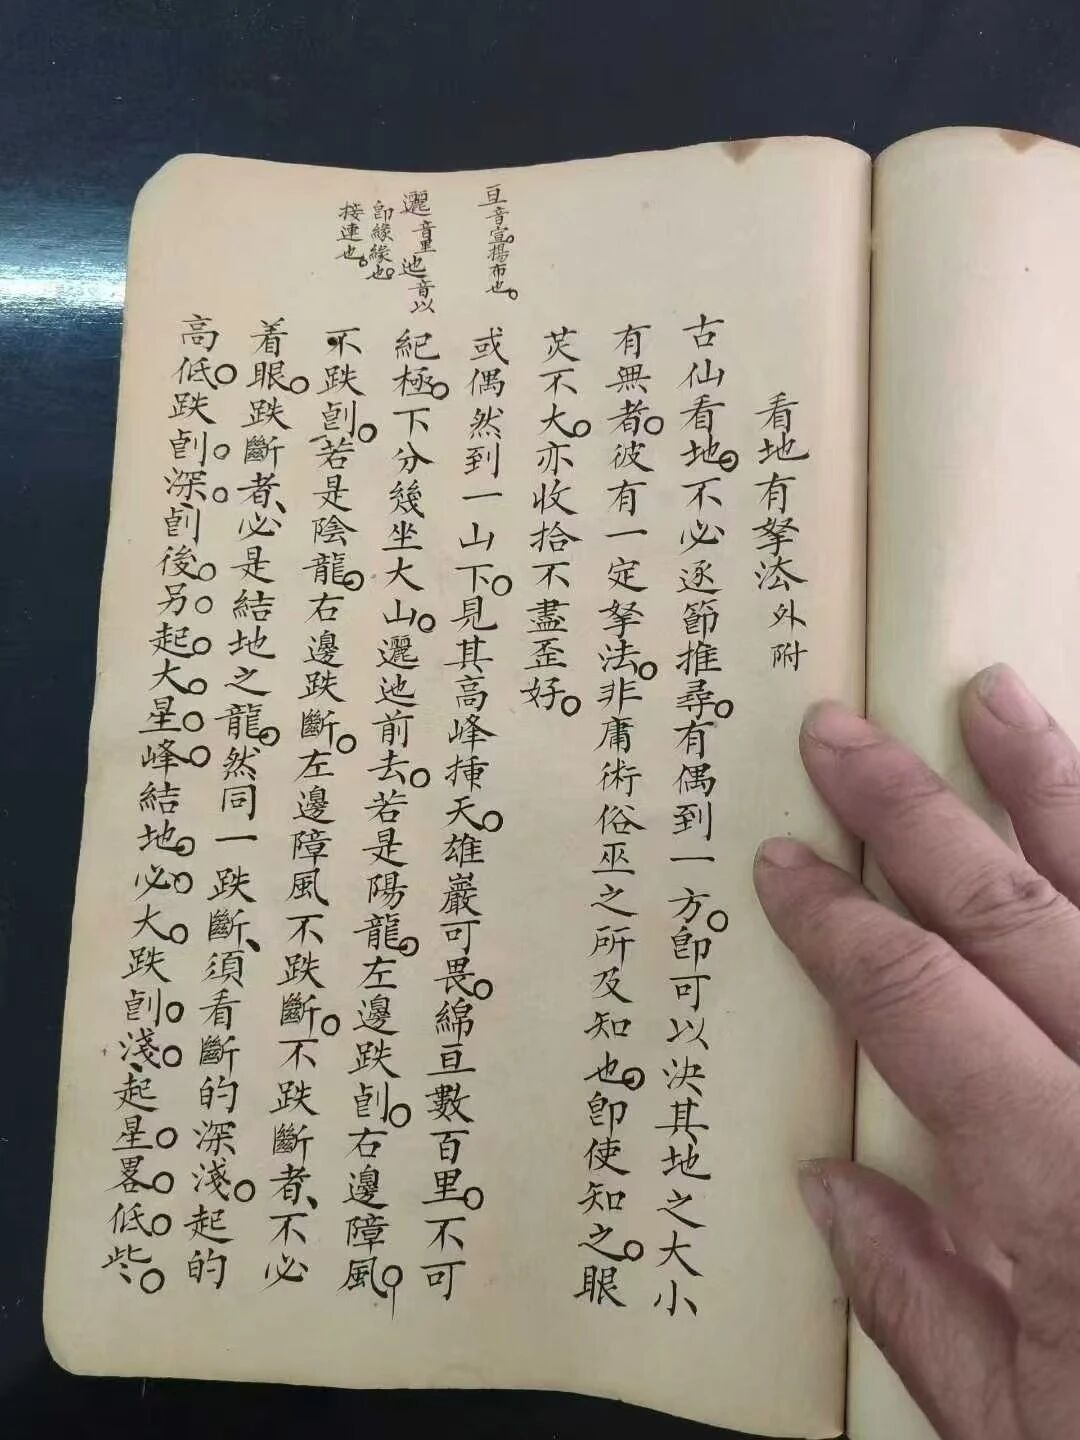 亘音宣。揚布也。
邐音里迆音以
卽緣緣也。
接連也。
看地有拏法 外附
古仙看地。不必逐節推尋。有偶到一方。卽可以決其地之大小
有無者。彼有一定拏法。非庸術俗巫之所及知也。卽使知之。眼
芡不大。亦收拾不盡歪好。
或偶然到一山下。見其高峰揷天。雄巖可畏。綿亘數百里。不可
紀極。下分幾坐大山。邐迆前去。若是陽龍。左邊跌㓰。右邊障風。
不跌㓰。若是陰龍。右邊跌斷。左邊障風不跌斷。不跌斷者、不必
着眼。跌斷者、必是結地之龍。然同一跌斷、須看斷的深淺。起的
高低。跌㓰。深。㓰後。另。起。大。星。峰。結地。必。大。跌㓰。淺。起星。畧。低。些。